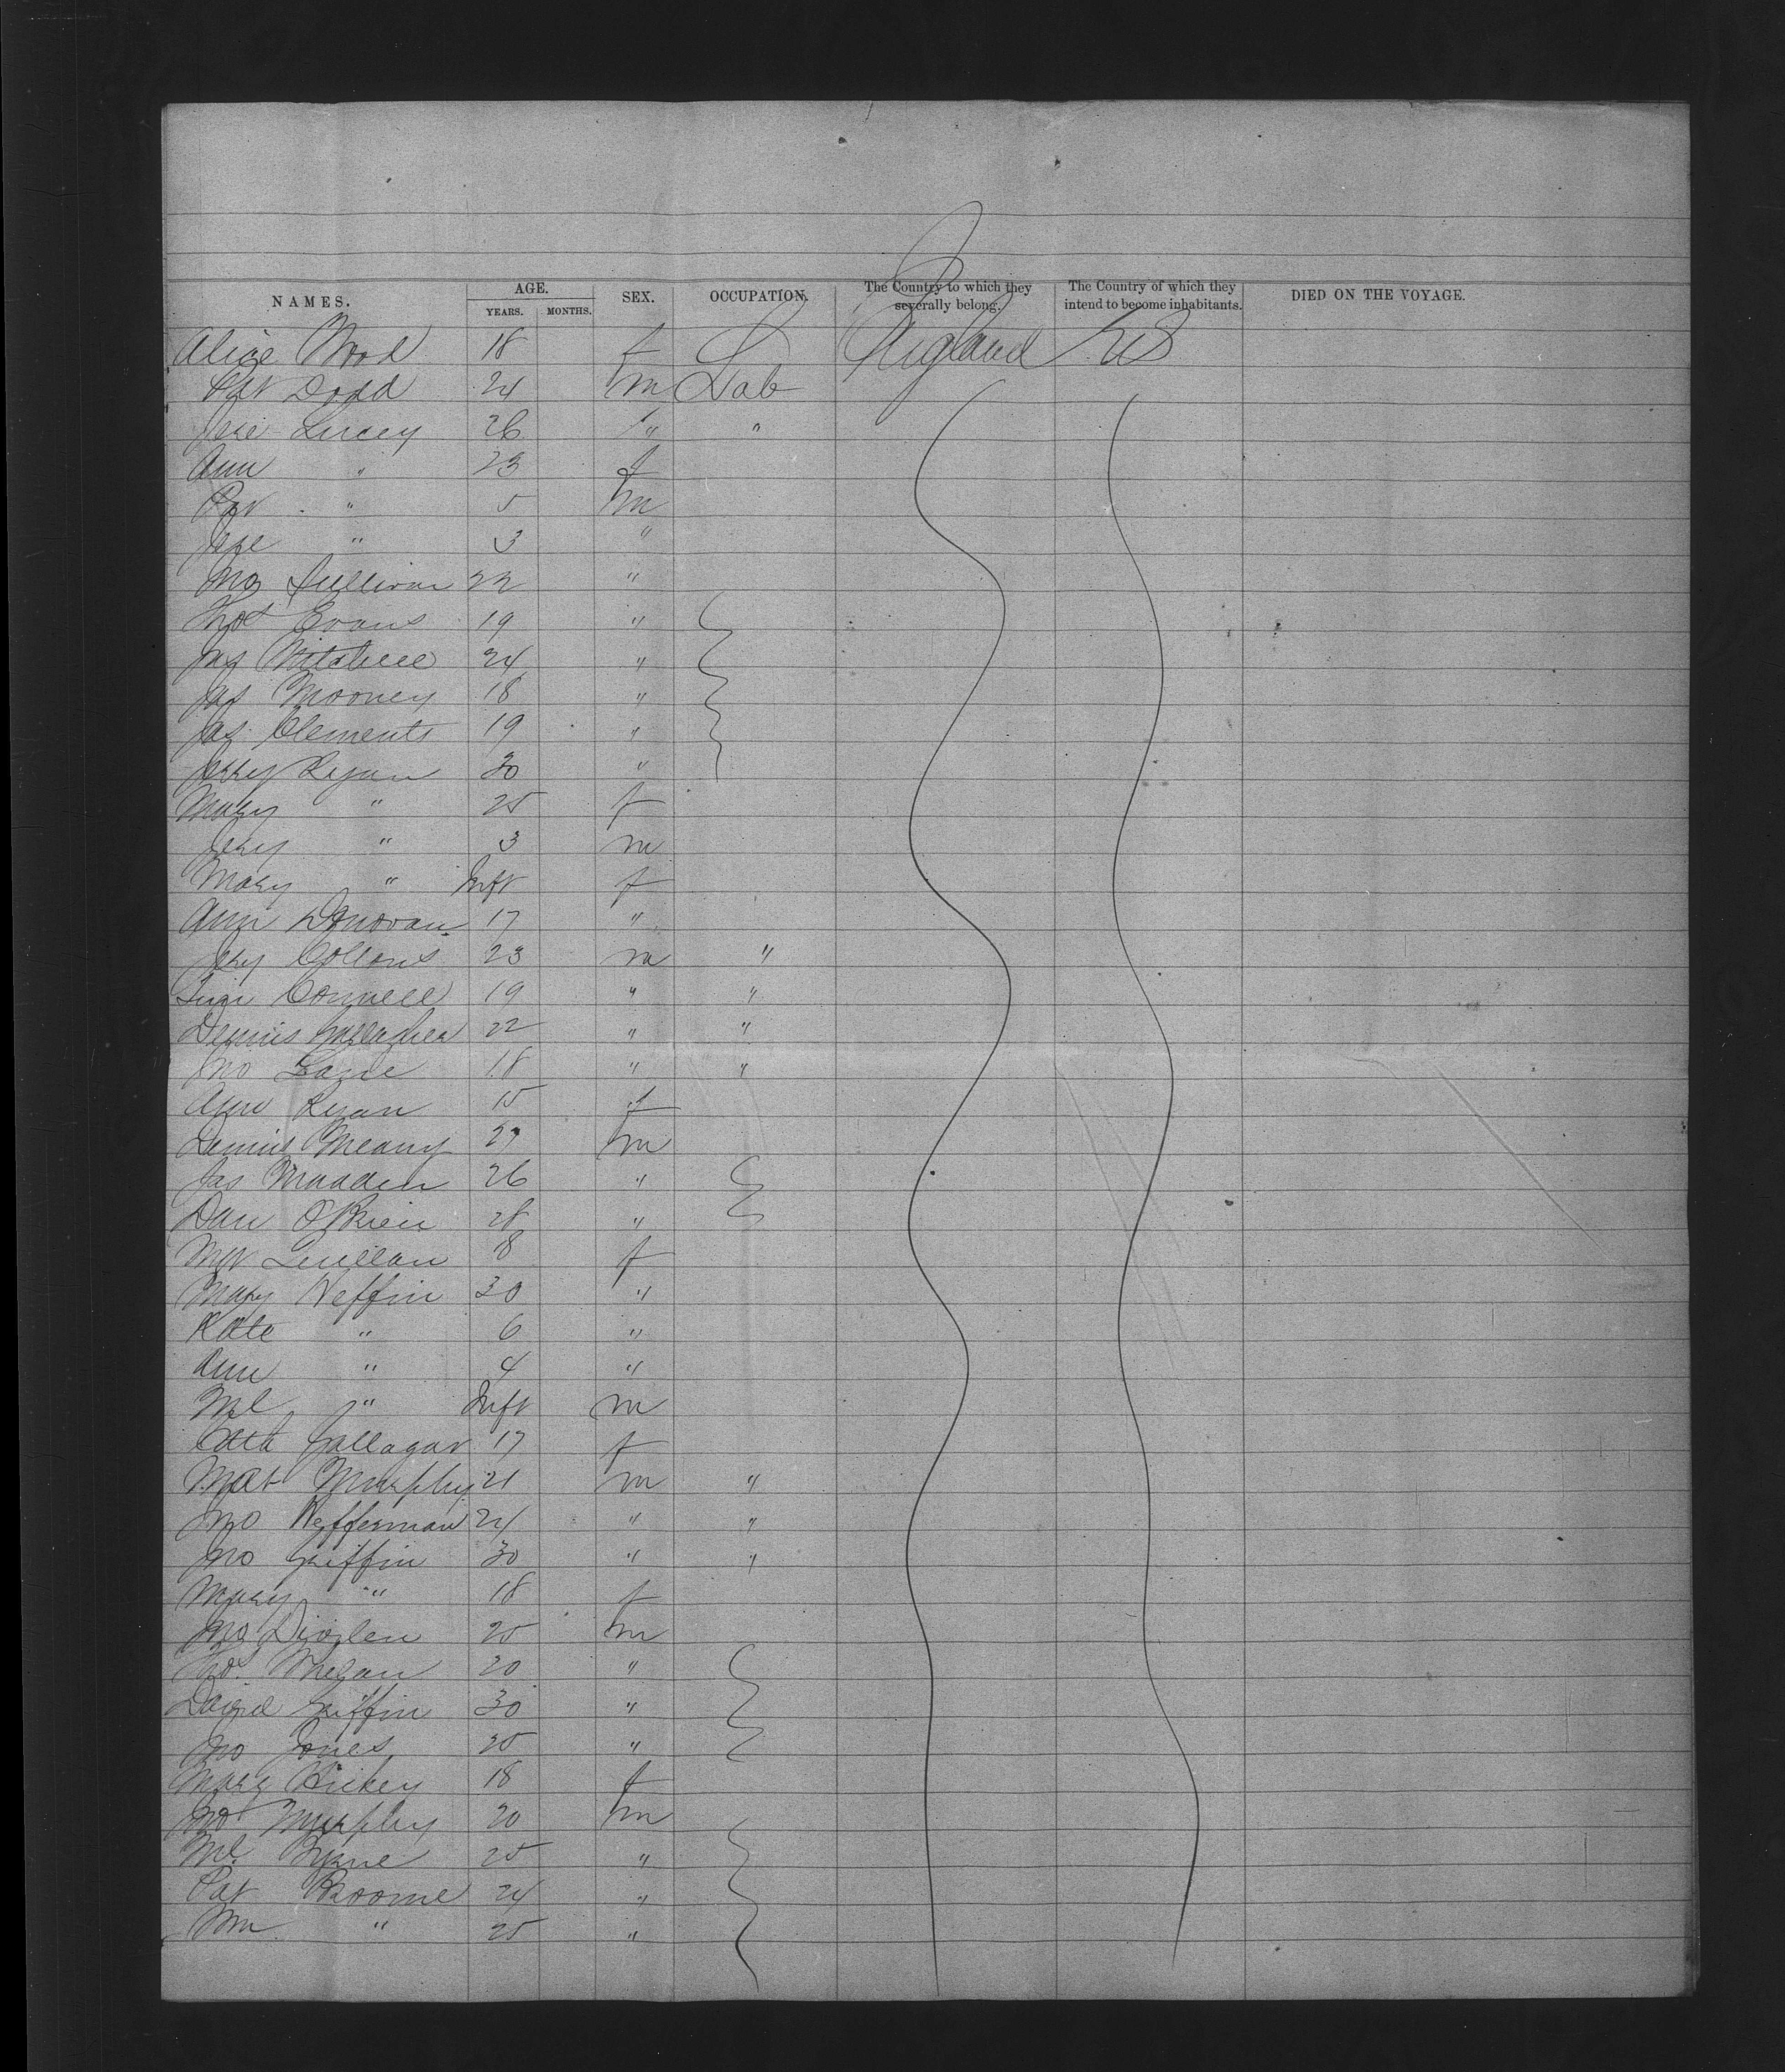 NAMES. AGE. SEX. OCCUPATION. The Country to which they severally belong. The Country of which they intend to become inhabitants. DIED ON THE VOYAGE.
YEARS. MONTHS.
Alice 18 f England US
Pat Dodd 24 m Lab
Lucey 26 " "
Ann " 23 f
Pat " 5 m
" 3 "
Jno Sullivan 22 "
Evans 19 "
Jas Mitchell 24 "
Jas Mooney 18 "
Jas Clements 19 "
Jerry Ryan 30 "
Mary " 25 f
Jery " 3 m
Mary " Inft f
Ann Donovan 17 "
Jery Collons 23 m "
Connell 19 " "
Dennis Gallagher 22 " "
Jno Lane 18 " "
Ann Ryan 15 f
Dennis Meany 27 m
Jas Madden 26 "
Dan O'Brien 28 "
18 f
Mary Heffin 30 "
Kate " 6 "
Ann " 4 "
Ml " Inft m
Cath Gallagar 17 f
Mat Murphy 21 m "
Jno Hefferman 24 " "
Jno Griffin 30 " "
Mary " 18 f
Jno 25 m
20 "
David Griffin 30 "
Jno Jones 25 "
Mary Hickey 18 f
Jno Murphy 20 m
Ml 25 "
Pat 24 "
Wm " 25 "